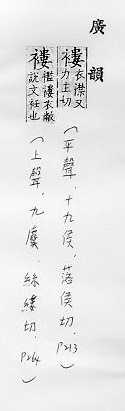 廣韻
褸
衣襟又
力主切
褸
襤褸衣敝
說文衽也
（平聲，十九侯，落侯切，P213）
（上聲，九麌，絲縷切，P264）